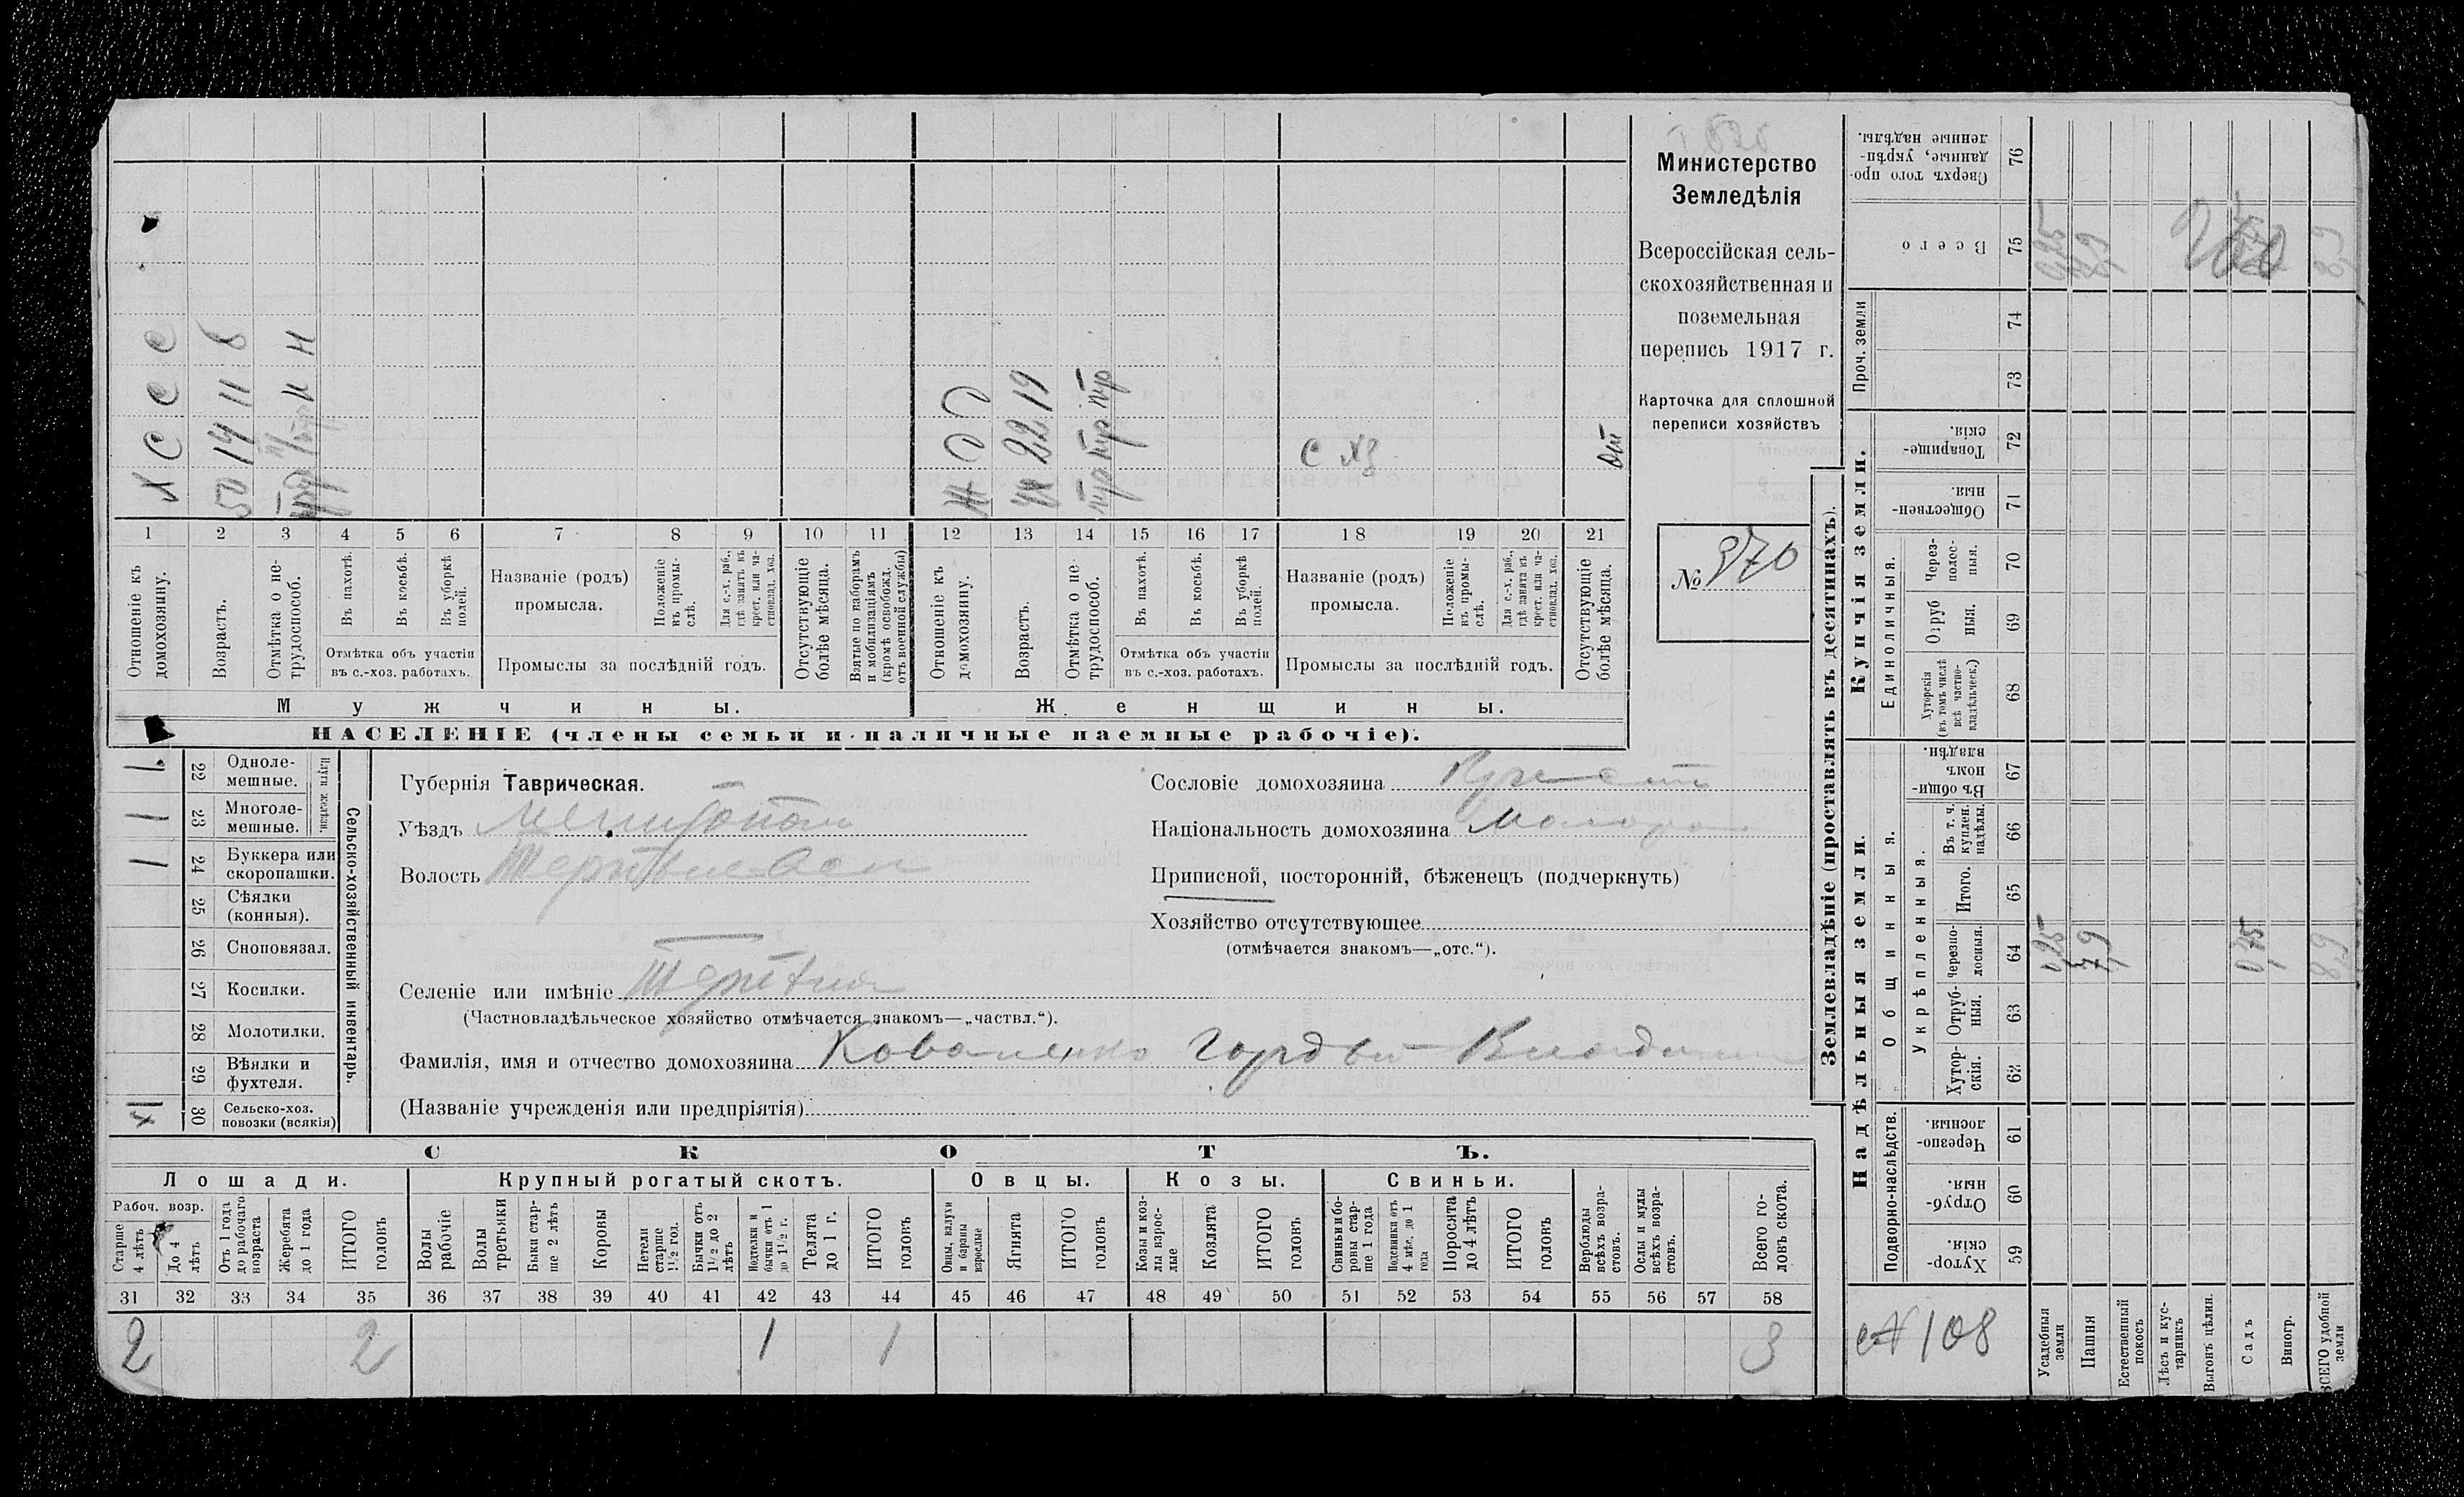 Министерство
Земледѣлія
Всероссійская сель-
скохозяйственная и
поземельная
перепись 1917 г.
Карточка для сплошной
переписи хозяйствъ
№ 370
Х С С С
50 14 11 8
Н Н
Ж Д Д
22 19
с хз
от
1 2 3 4 5 6 7 8 9 10 11 12 13 14 15 16 17 18 19 20 21
Отношеніе къ домохозяину.
Возрастъ.
Отмѣтка о не-трудоспособ.
Въ пахотѣ.
Въ косьбѣ.
Въ уборкѣ полей.
Отмѣтка объ участіи
въ с.-хоз. работахъ.
Названіе (родъ)
промысла.
Положеніе въ промы-слѣ.
Для с.-х. раб., гдѣ занятъ въ крест. или ча-стновлад. хоз.
Промыслы за послѣдній годъ.
Отсутствующіе болѣе мѣсяца.
Взятые по наборамъ и мобилизаціямъ (кромѣ освобожд. отъ военной службы)
Отношеніе къ домохозяину.
Возрастъ.
Отмѣтка о не-трудоспособ.
Въ пахотѣ.
Въ косьбѣ.
Въ уборкѣ полей.
Отмѣтка объ участіи
въ с.-хоз. работахъ.
Названіе (родъ)
промысла.
Положеніе въ промы-слѣ.
Для с.-х. раб., гдѣ занята въ крест. или ча-стновлад. хоз.
Промыслы за послѣдній годъ.
Отсутствующіе болѣе мѣсяца.
Мужчины.
Женщины.
НАСЕЛЕНІЕ (члены семьи и наличные наемные рабочіе).
Сельско-хозяйственный инвентарь.
Плуги желѣзн.
1 22 Одноле-мешные.
1 23 Многоле-мешные.
1 24 Буккера или скоропашки.
25 Сѣялки (конныя).
26 Сноповязал.
27 Косилки.
28 Молотилки.
29 Вѣялки и фухтеля.
30 Сельско-хоз. повозки (всякія)
Губернія Таврическая.
Уѣздъ Мелитополь
Волость
Селеніе или имѣніе
(Частновладѣльческое хозяйство отмѣчается знакомъ—„частвл.“).
Фамилія, имя и отчество домохозяина Коваленко Гордѣй
(Названіе учрежденія или предпріятія)
Сословіе домохозяина
Національность домохозяина
Приписной, посторонній, бѣженецъ (подчеркнуть)
Хозяйство отсутствующее
(отмѣчается знакомъ—„отс.“).
СКОТЪ.
Лошади.
Крупный рогатый скотъ.
Овцы.
Козы.
Свиньи.
Рабоч. возр.
Старше 4 лѣтъ
До 4 лѣтъ
Отъ 1 года до рабочаго возраста
Жеребята до 1 года
ИТОГО головъ
Волы рабочіе
Волы третьяки
Быки стар-ше 2 лѣтъ
Коровы
Нетели старше 1½ год.
Бычки отъ 1½ до 2 лѣтъ
Подтелки и бычки отъ 1 до 1½ г.
Телята до 1 г.
ИТОГО головъ
Овцы, валухи и бараны взрослые
Ягнята
ИТОГО головъ
Козы и коз-лы взрос-лые
Козлята
ИТОГО головъ
Свиньи и бо-ровы стар-ше 1 года
Подсвинки отъ 4 мѣс. до 1 года
Поросята до 4 лѣтъ
ИТОГО головъ
Верблюды всѣхъ возра-стовъ.
Ослы и мулы всѣхъ возра-стовъ.
Всего го-ловъ скота.
31 32 33 34 35 36 37 38 39 40 41 42 43 44 45 46 47 48 49 50 51 52 53 54 55 56 57 58
2 2 1 1 3
Землевладѣніе (проставлять въ десятинахъ).
Надѣльныя земли.
Купчія земли.
Проч. земли
Подворно-наслѣдств.
Общинныя.
Укрѣпленныя.
Единоличныя.
Сверхъ того про-данные, укрѣп-ленные надѣлы. 76
Всего 75
74
73
Товарище-скія. 72
Обществен-ныя. 71
Через-полос-ныя. 70
Отруб ныя. 69
Хуторскія (въ томъ числѣ всѣ частно-владѣльческ.) 68
Въ общин-номъ владѣн. 67
Въ т. ч. куплен. надѣлы. 66
Итого. 65
Черезпо-лосныя. 64
Отруб-ныя. 63
Хутор-скія. 62
Черезпо-лосныя. 61
Отруб-ныя. 60
Хутор-скія. 59
№ 108
Усадебныя земли
Пашня
Естественный покосъ
Лѣсъ и кус-тарникъ
Выгонъ цѣлин.
Садъ
Виногр.
ВСЕГО удобной земли